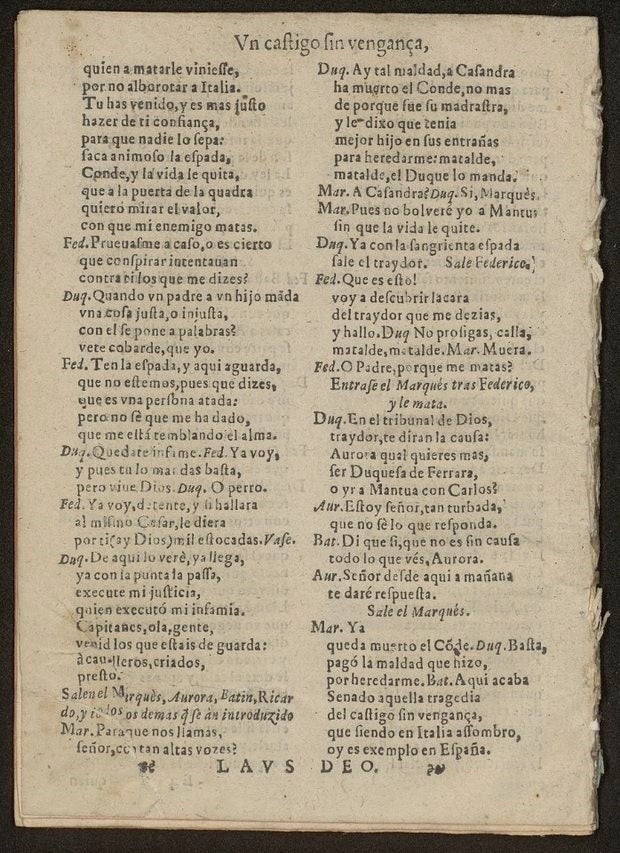 Vn castigo sin vengança,
quien a matarle viniesse,
por no alborotar a Italia.
Tu has venido, y es mas justo
hazer de ti confiança,
para que nadie lo sepa:
saca animoso la espada,
Conde, y la vida le quita,
que a la puerta de la quadra
quiero mirar el valor,
con que mi enemigo matas.
Fed. Prueuasme a caso, o es cierto
que conspirar intentauan
contra ti los que me dizes?
Duq. Quando vn padre a vn hijo mãda
vna cosa justa, o injusta,
con el se pone a palabras?
vete cobarde, que yo.
Fed. Ten la espada, y aqui aguarda,
que no es temor, pues que dizes,
que es vna persona atada:
pero no sè que me ha dado,
que me està temblando el alma.
Duq. Quedate infame. Fed. Ya voy,
y pues tu lo mandas basta,
pero viue Dios. Duq. O perro.
Fed. Ya voy, detente, y si hallara
al mismo Cesar, le diera
por ti (ay Dios) mil estocadas. Vase.
Duq. De aqui lo verè, ya llega,
ya con la punta la passa,
execute mi justicia,
quien executó mi infamia.
Capitanes, ola, gente,
venid los que estais de guarda:
à caualleros, criados,
presto.
Salen el Marquès, Aurora, Batin, Ricar
do, y todos los demas q̃ se àn introduzido
Mar. Para que nos llamas,
señor, con tan altas vozes?
Duq. Ay tal maldad, a Casandra
ha muerto el Conde, no mas
de porque fue su madrastra,
y le dixo que tenia
mejor hijo en sus entrañas
para heredarme: matalde,
matalde, el Duque lo manda.
Mar. A Casandra? Duq. Si, Marquès.
Mar. Pues no bolverè yo a Mantua
sin que la vida le quite.
Duq. Ya con la sangrienta espada
sale el traydor. Sale Federico.
Fed. Que es esto!
voy a descubrir la cara
del traydor que me dezias,
y hallo. Duq No prosigas, calla,
matalde, matalde. Mar. Muera.
Fed. O Padre, porque me matas?
Entrase el Marquès tras Federico,
y le mata.
Duq. En el tribunal de Dios,
traydor, te diran la causa:
Aurora qual quieres mas,
ser Duquesa de Ferrara,
o yr a Mantua con Carlos?
Aur. Estoy señor, tan turbada,
que no sè lo que responda.
Bat. Di que si, que no es sin causa
todo lo que vés, Aurora.
Aur. Señor desde aqui a mañana
te daré respuesta.
Sale el Marquès.
Mar. Ya
queda muerto el Cõde. Duq. Basta,
pagó la maldad que hizo,
por heredarme. Bat. Aqui acaba
Senado aquella tragedia
del castigo sin vengança,
que siendo en Italia assombro,
oy es exemplo en España.
LAVS DEO.